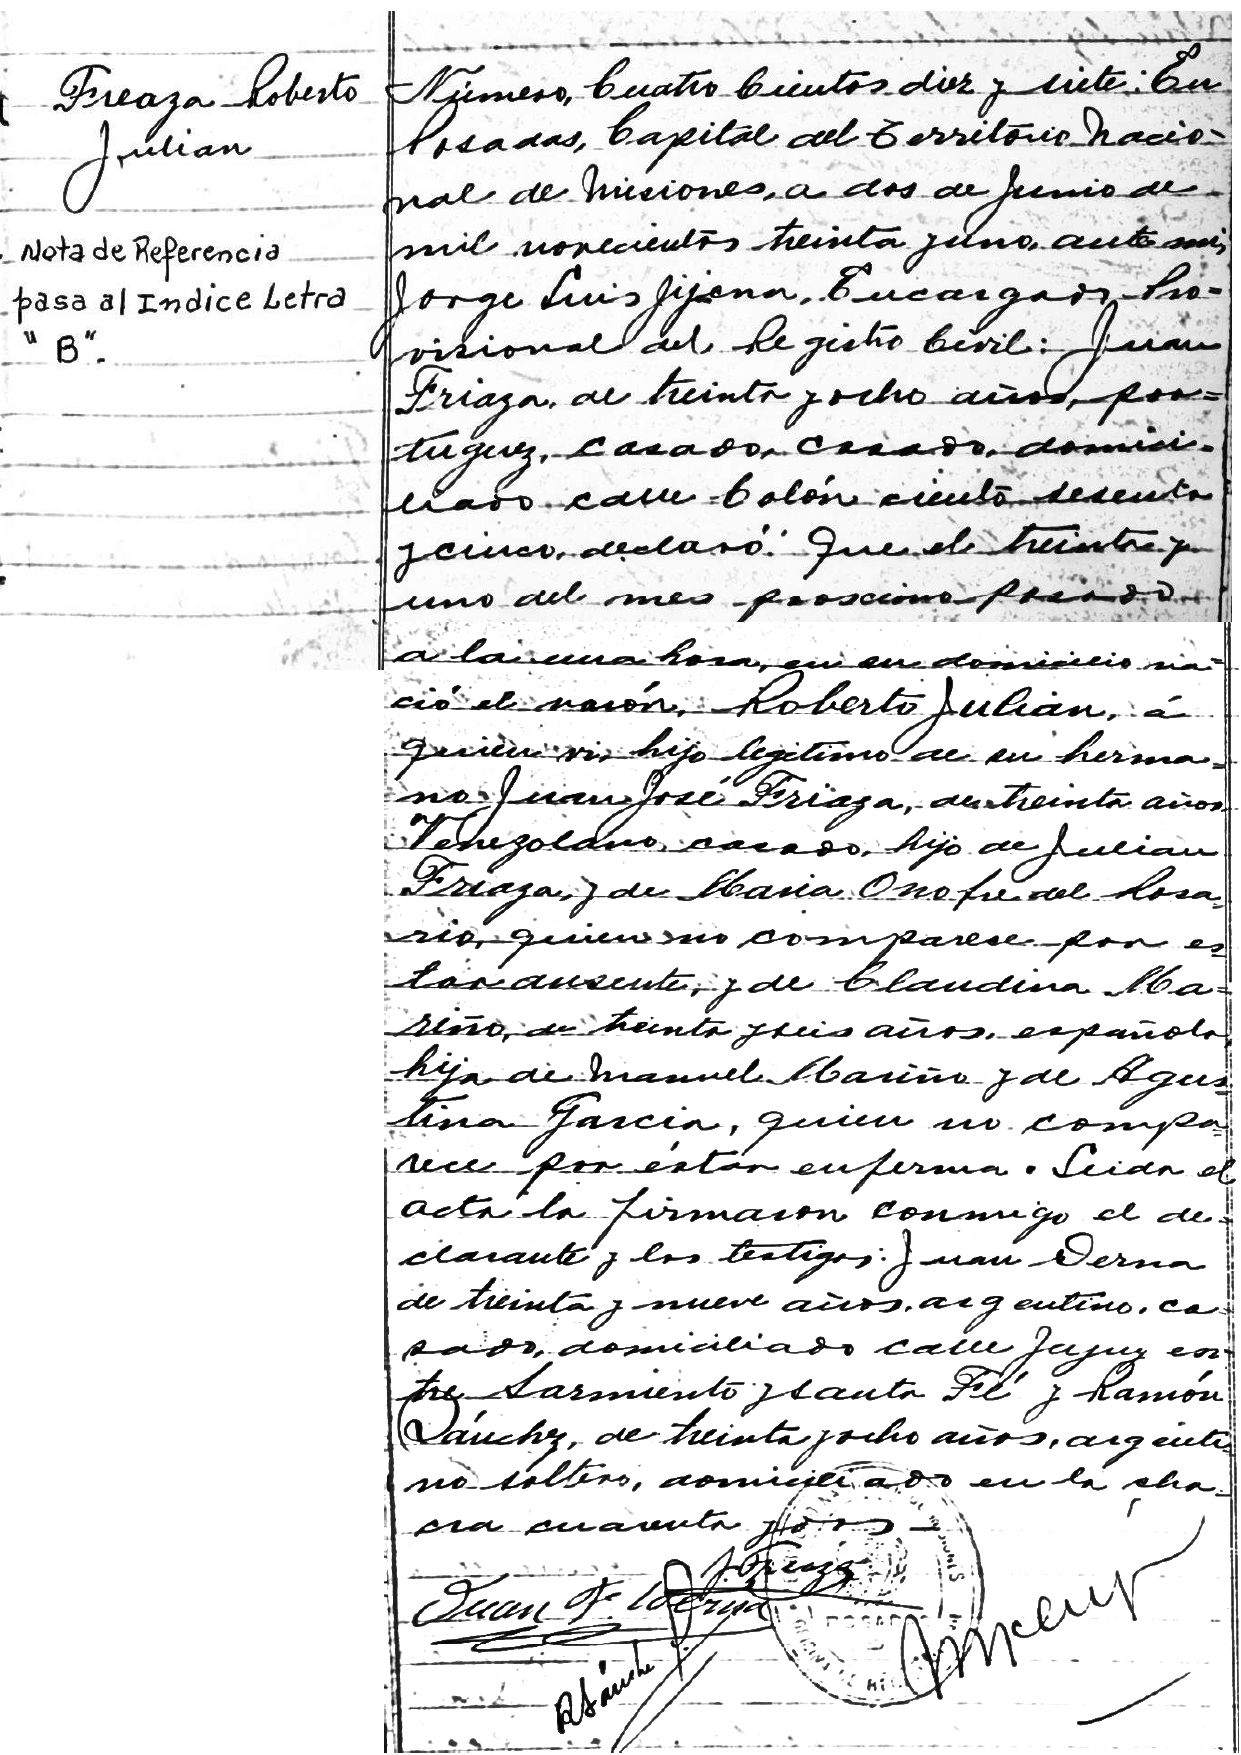 Freaza Roberto
Julian
Nota de Referencia
pasa al Indice Letra
"B".
Número, Cuatro Cientos diez y siete: En
Posadas, Capital del Territorio Nacio-
nal de Misiones, a dos de Junio de
mil novecientos treinta y uno, ante mi,
Jorge Luis Jijena, Encargado Pro-
visional del Registro Civil: Juan
Friaza, de treinta y ocho años, por=
tuguez, casado, casado, domici-
liado calle Colón ciento sesenta
y cinco, declaró: Que el treinta y
uno del mes proscimo pasado
a la una hora, en su domicilio na-
ció el varón, Roberto Julian, á
quien vi, hijo legitimo de su herma=
no Juan José Friaza, de treinta años
Venezolano, casado, hijo de Julian
Friaza, y de Maria Onofre del Rosa-
rio, quien no comparese por es
tar ausente, y de Claudina Ma=
riño, de treinta y seis años, española,
hija de Manuel Mariño y de Agus
tina Garcia, quien no compa
rece por éstar enferma. Leida el
acta la firmaron conmigo el de-
clarante y los testigos: Juan Derna
de treinta y nueve años, argentino, ca-
sado, domiciliado calle Jujuy en-
tre Sarmiento y Santa Fé y Ramón
Sánchz, de treinta y ocho años, argenti
no soltero, domiciliado en la cha-
cra cuarenta y dos —
Juan
R Sánche
POSADAS